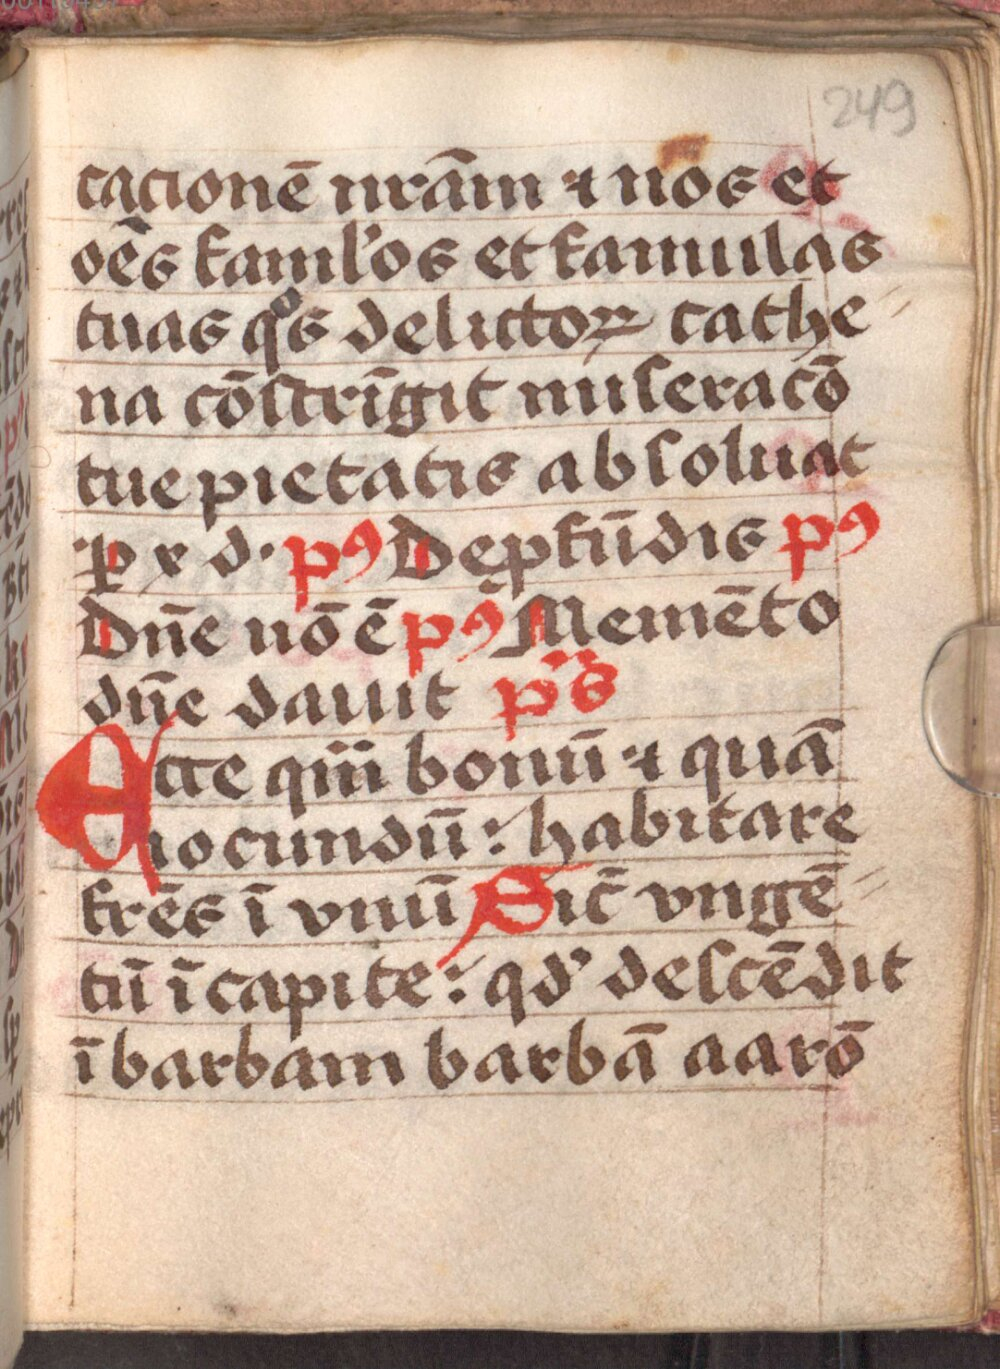 249
cacionē nr̄am ⁊ nos et
oēs faml'os et famulas
tuas qͦs delictoꝝ cathe〃
na cōstrīgit miseracō
tue pietatis absoluat
ꝑ x d· pꝰ De ꝓfūdis pꝰ
Dn̄e nō ē pꝰ Memēto
dn̄e dauit pˢ
Ecce qm̄ bonū ⁊ quā
iocundū : habitare
frēs ī vnū Sic̄ vngē〃
tū ī capite : qd' descēdit
ī barbam barbā aarō